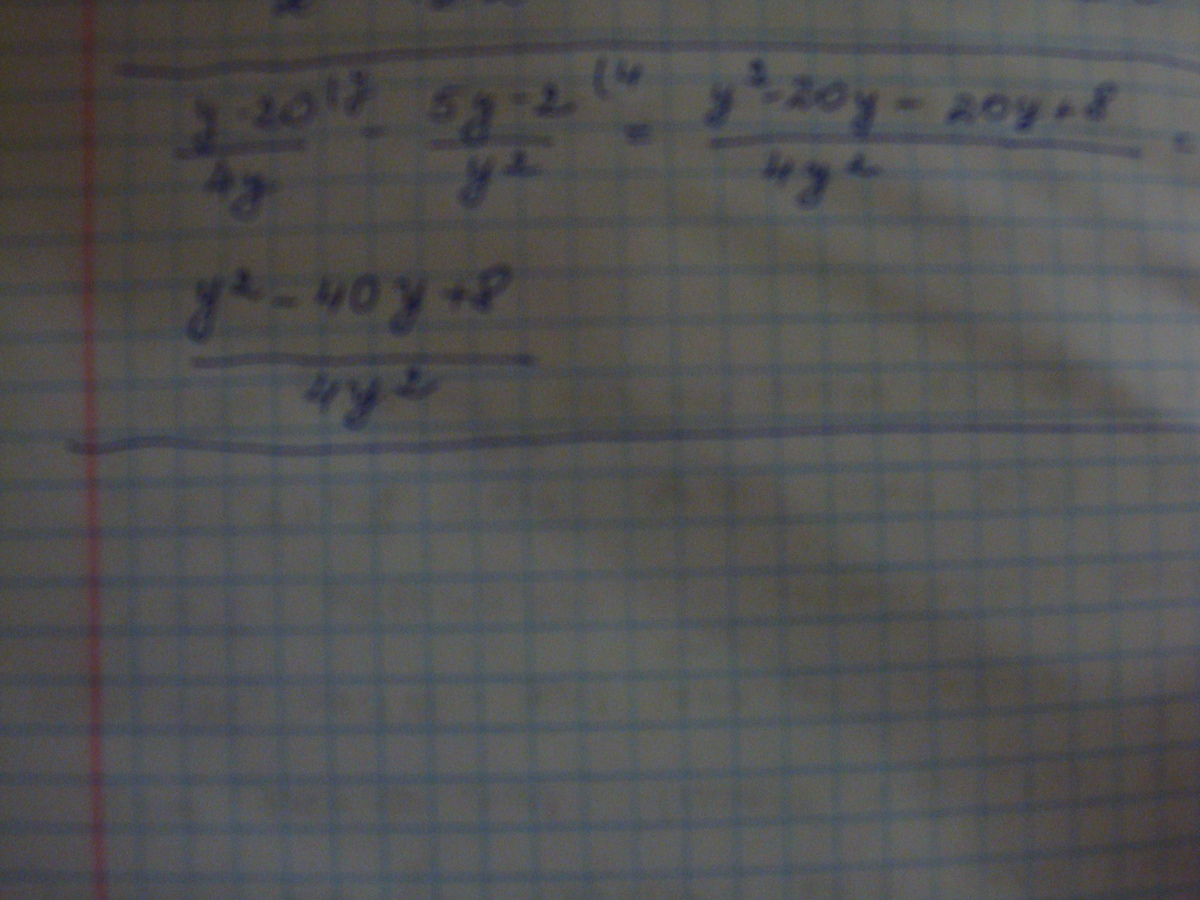 y-20(y / 4y - 5y-2(4 / y² = y²-20y-20y+8 / 4y² =
y²-40y+8 / 4y²